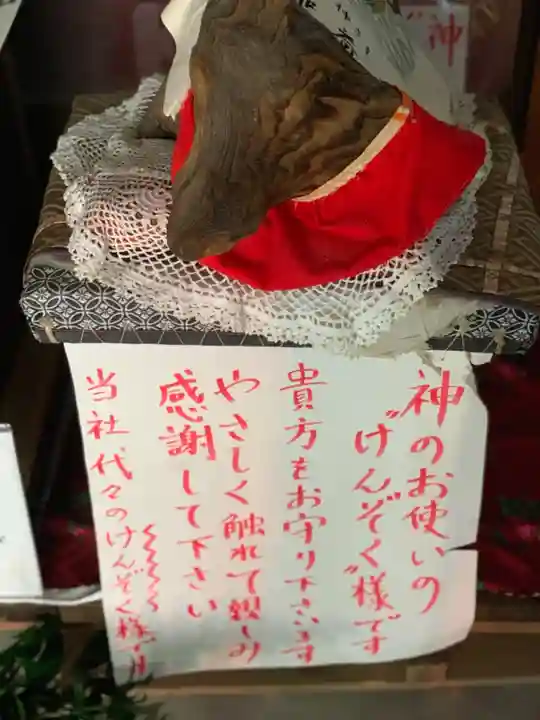 神のお使いの
"けんぞく"様です
貴方をお守り下さいます
やさしく触れて親しみ
感謝して下さい
当社代々のけんぞく様です
神